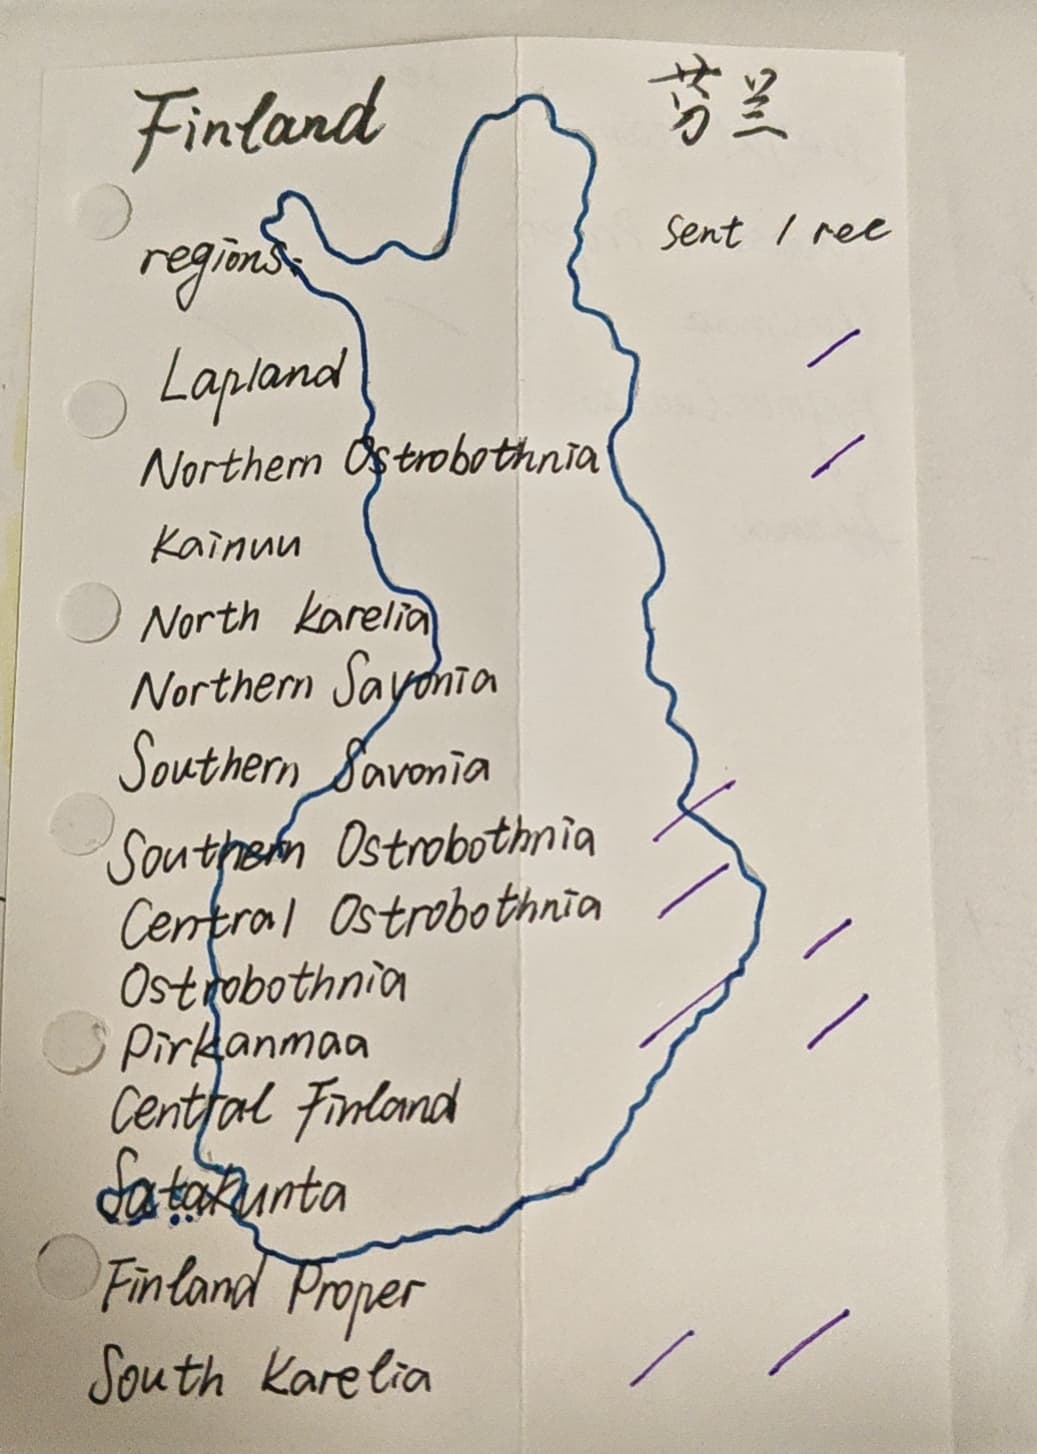 Finland 芬兰
sent / rec
regions:
Lapland /
Northern Ostrobothnia /
Kainuu
North Karelia
Northern Savonia
Southern Savonia
Southern Ostrobothnia /
Central Ostrobothnia / /
Ostrobothnia
Pirkanmaa / /
Central Finland
Satakunta
Finland Proper
South Karelia / /